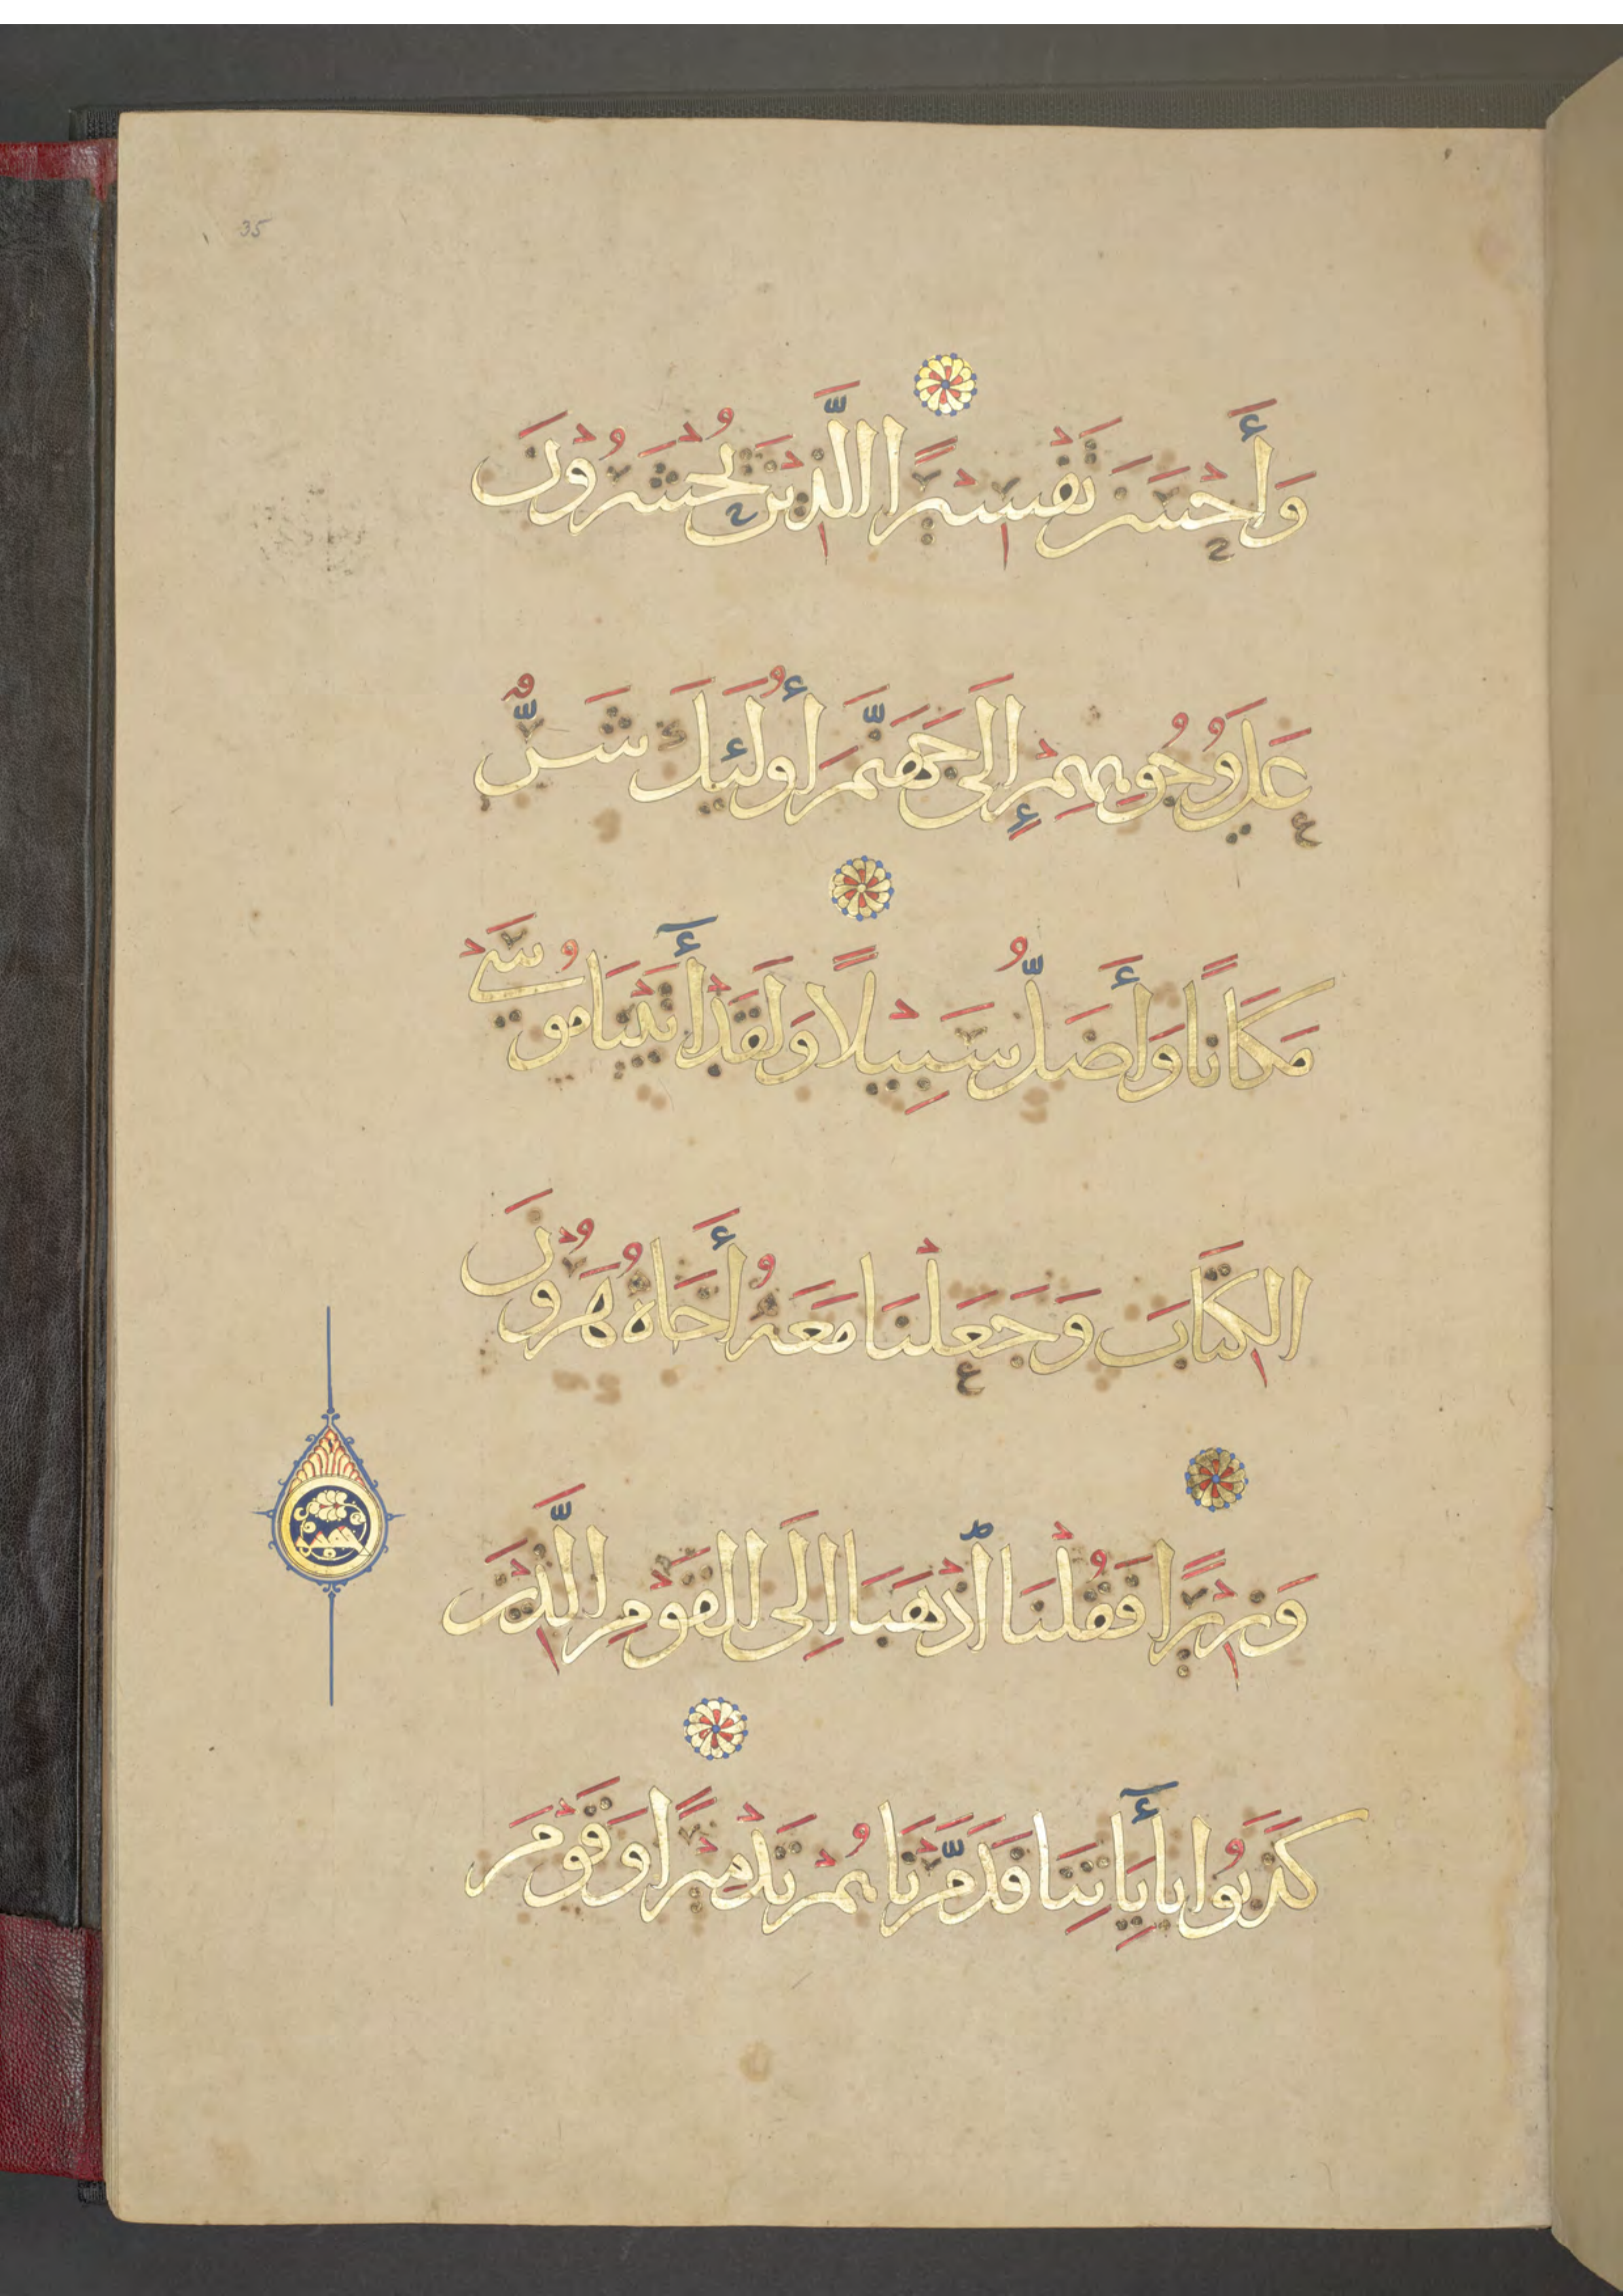 35
وَأَحْسَنَ تَفْسِيرًا الَّذِينَ يُحْشَرُونَ
عَلَى وُجُوهِهِمْ إِلَى جَهَنَّمَ أُولَئِكَ شَرٌّ
مَكَانًا وَأَضَلُّ سَبِيلًا وَلَقَدْ أٰتَيْنَا مُوسَى
الكِتَابَ وَجَعَلْنَا مَعَهُ أَخَاهُ هَرُونَ
وَزِيرًا فَقُلْنَا اذْهَبَا إِلَى القَوْمِ الَّذِينَ
كَذَّبُوا بِأٰيَاتِنَا فَدَمَّرْنَاهُمْ تَدْمِيرًا وَقَوْمَ